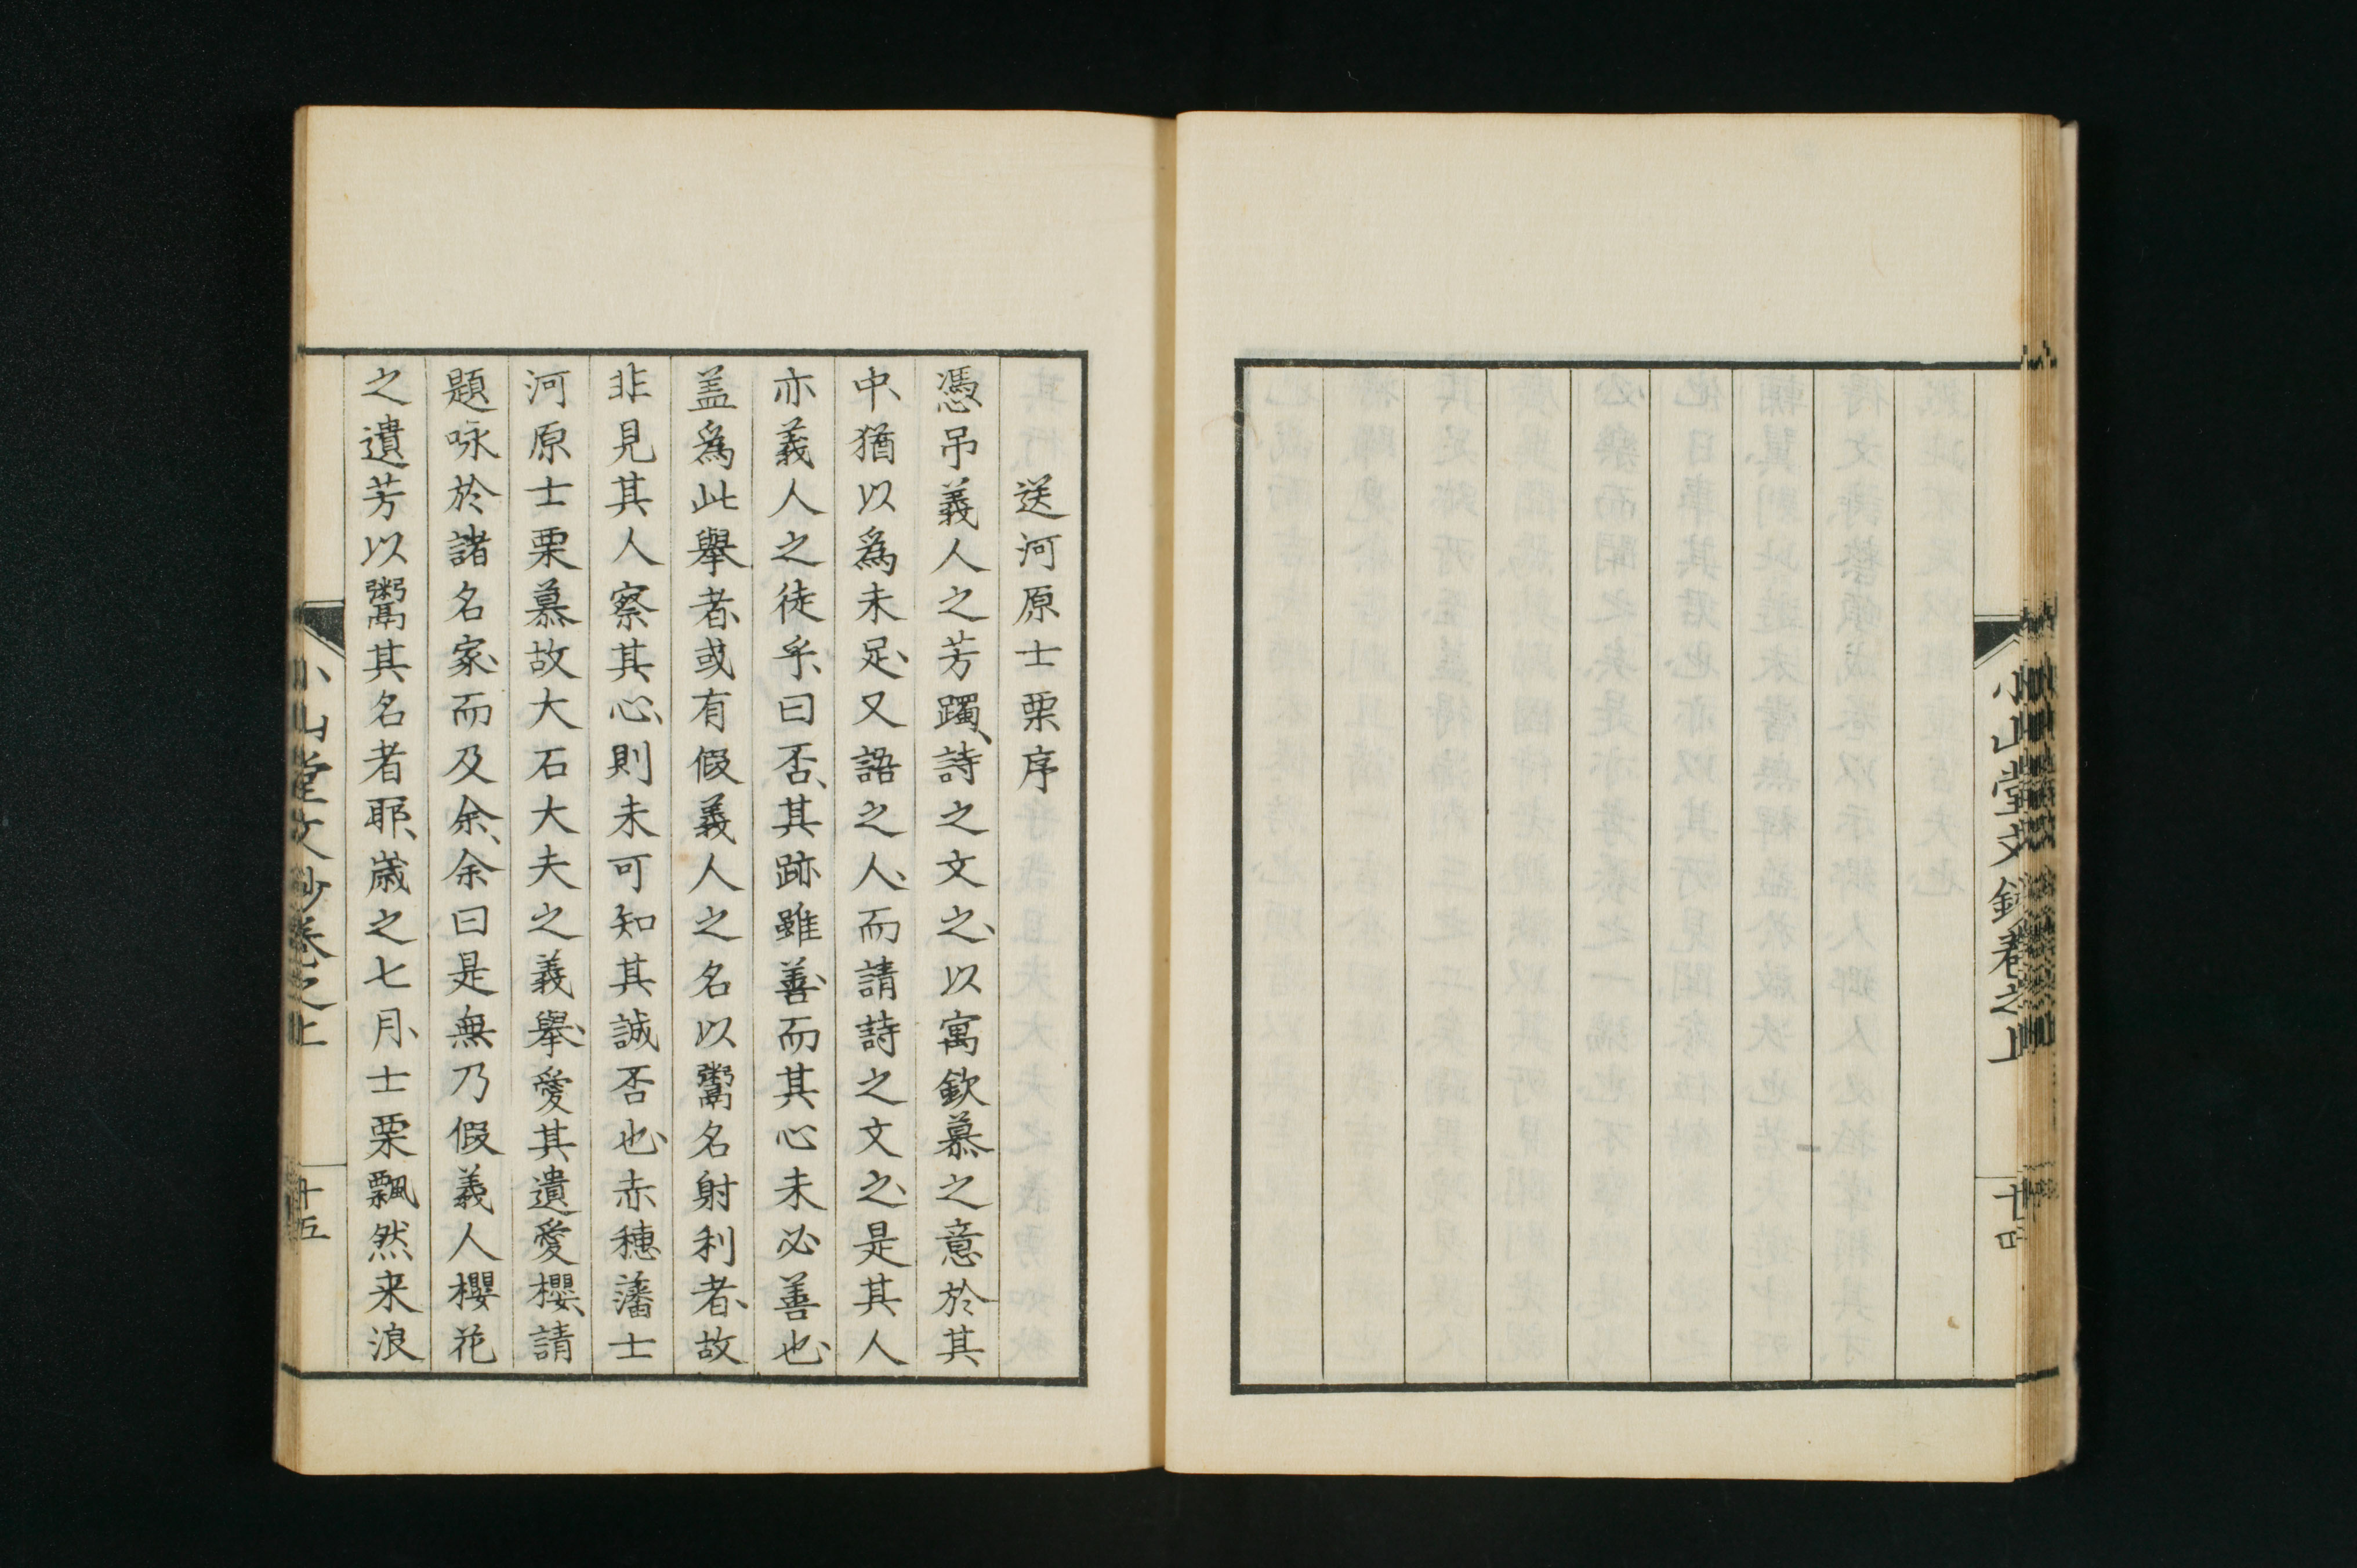 小山堂文鈔卷之上
十四
送河原士栗序
憑吊義人之芳躅、詩之文之、以寓欽慕之意於其
中、猶以爲未足、又語之人、而請詩之文之、是其人
亦義人之徒乎、曰否、其跡雖善、而其心未必善也、
盖爲此擧者、或有假義人之名以鬻名射利者、故
非見其人察其心、則未可知其誠否也、赤穗藩士
河原士栗慕故大石大夫之義擧、愛其遺愛櫻、請
題咏於諸名家、而及余、余曰是無乃假義人櫻花
之遺芳以鬻其名者耶、歳之七月、士栗飄然来浪
小山堂文鈔卷之上
十五